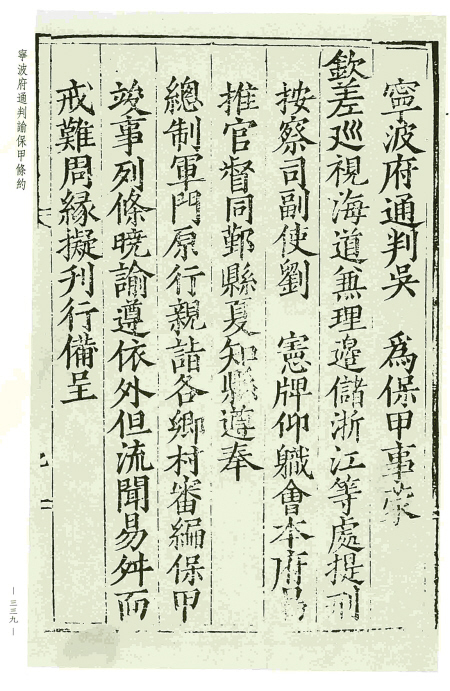 寧波府通判吳　為保甲事蒙
欽差巡視海道兼理邊儲浙江等處提刑
按察司副使劉　憲牌仰職會本府
推官督同鄞縣夏知縣遵奉
總制軍門原行親詣各鄉村審編保甲
竣事列條曉諭遵依外但流聞易舛而
戒難周緣擬刋行備呈
寧波府通判諭保甲條約
— 三三九 —